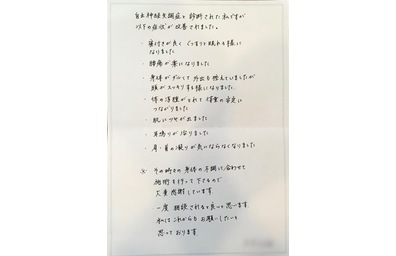 自律神経失調症と診断された私ですが
以下の症状が改善されました。
・寝付きが良くぐっすりと眠れる様に
なりました
・腰痛が楽になりました
・身体がダルくて外出も控えていましたが
頭がスッキリする様になりました
・体の浮腫がとれて体重の安定に
つながりました
・肌につやが出ました
・耳鳴りが治りました
・肩・首の凝りが気にならなくなりました
その時々の身体の不調に合わせて
施術を行って下さるので
大変感謝しています
一度相談されると良いと思います
私はこれからもお願いしたいと
思っております